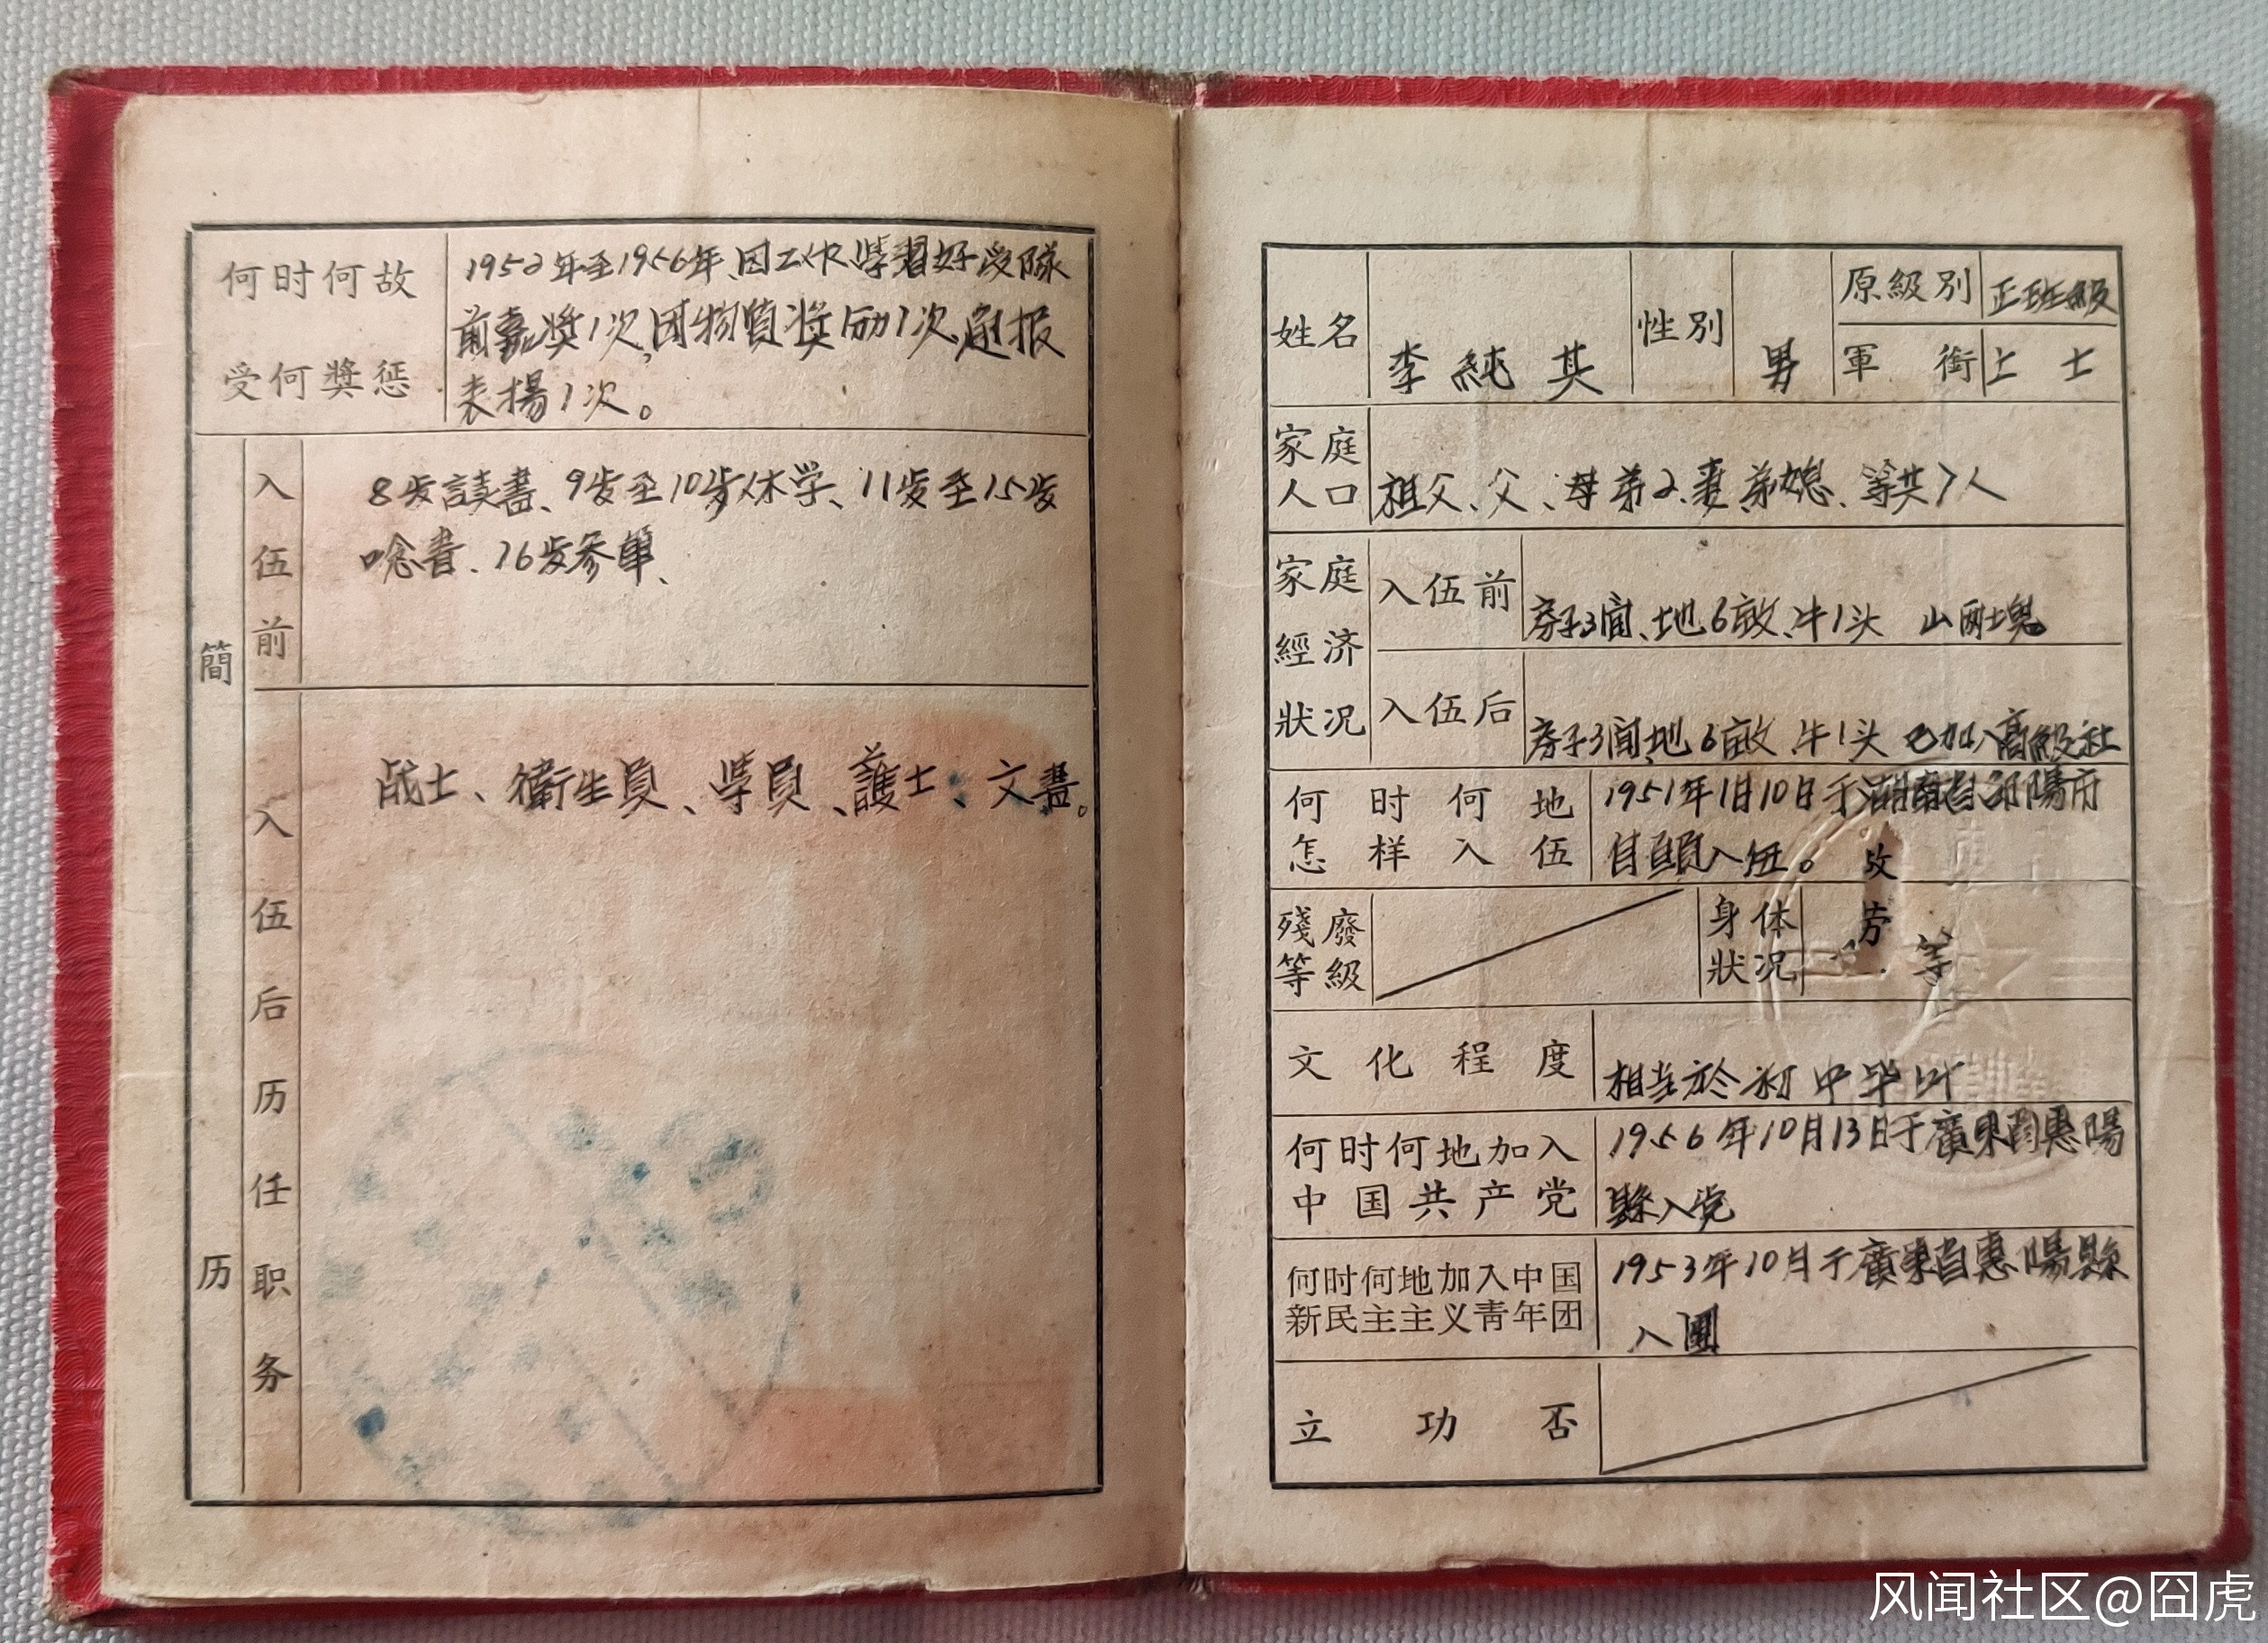 何时何故
受何獎惩
1952年至1956年、因工作学習好受隊
前嘉奖1次,团物質奖励1次,通报
表揚1次。
簡历
入伍前
8岁讀書、9岁至10岁休学、11岁至15岁
唸書、16岁参軍、
入伍后历任职务
战士、衛生員、学員、護士、文書。
姓名
李純其
性別
男
原級別
正班級
軍銜
上士
家庭
人口
祖父、父、母、弟2、妻、弟媳、等共7人
家庭
經济
狀况
入伍前
房子3间、地6亩、牛1头 山兩塊
入伍后
房子3间、地6亩 牛1头 已加入高級社
何时何地
怎样入伍
1951年1月10日于湖南省邵陽府
自願入伍。
残廢
等級
身体
狀况
等
文化程度
相当於初中毕业
何时何地加入
中国共产党
1956年10月13日于廣東省惠陽
縣入党
何时何地加入中国
新民主主义青年团
1953年10月于廣東省惠陽縣
入團
立功否
风闻社区@囧虎